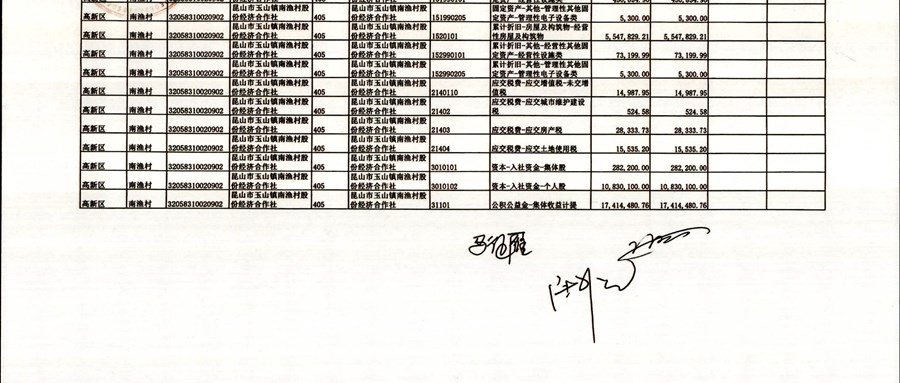 固定资产-其他-管理性其他固
高新区 南渔村 32058310020902 昆山市玉山镇南渔村股份经济合作社 405 昆山市玉山镇南渔村股份经济合作社 151990205 定资产-管理性电子设备类 5,300.00 5,300.00
高新区 南渔村 32058310020902 昆山市玉山镇南渔村股份经济合作社 405 昆山市玉山镇南渔村股份经济合作社 1520101 累计折旧-房屋及构筑物-经营性房屋及构筑物 5,547,829.21 5,547,829.21
高新区 南渔村 32058310020902 昆山市玉山镇南渔村股份经济合作社 405 昆山市玉山镇南渔村股份经济合作社 152990101 累计折旧-其他-经营性其他固定资产-经营性设施类 73,199.99 73,199.99
高新区 南渔村 32058310020902 昆山市玉山镇南渔村股份经济合作社 405 昆山市玉山镇南渔村股份经济合作社 152990205 累计折旧-其他-管理性其他固定资产-管理性电子设备类 5,300.00 5,300.00
高新区 南渔村 32058310020902 昆山市玉山镇南渔村股份经济合作社 405 昆山市玉山镇南渔村股份经济合作社 2140110 应交税费-应交增值税-未交增值税 14,987.95 14,987.95
高新区 南渔村 32058310020902 昆山市玉山镇南渔村股份经济合作社 405 昆山市玉山镇南渔村股份经济合作社 21402 应交税费-应交城市维护建设税 524.58 524.58
高新区 南渔村 32058310020902 昆山市玉山镇南渔村股份经济合作社 405 昆山市玉山镇南渔村股份经济合作社 21403 应交税费-应交房产税 28,333.73 28,333.73
高新区 南渔村 32058310020902 昆山市玉山镇南渔村股份经济合作社 405 昆山市玉山镇南渔村股份经济合作社 21404 应交税费-应交土地使用税 15,535.20 15,535.20
高新区 南渔村 32058310020902 昆山市玉山镇南渔村股份经济合作社 405 昆山市玉山镇南渔村股份经济合作社 3010101 资本-入社资金-集体股 282,200.00 282,200.00
高新区 南渔村 32058310020902 昆山市玉山镇南渔村股份经济合作社 405 昆山市玉山镇南渔村股份经济合作社 3010102 资本-入社资金-个人股 10,830,100.00 10,830,100.00
高新区 南渔村 32058310020902 昆山市玉山镇南渔村股份经济合作社 405 昆山市玉山镇南渔村股份经济合作社 31101 公积公益金-集体收益计提 17,414,480.76 17,414,480.76